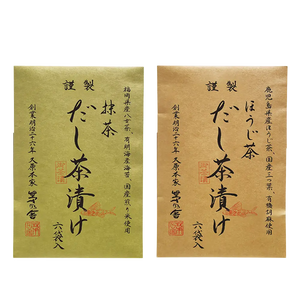 謹製
福岡県産八女茶、有明海産海苔、国産煎り米使用
抹茶
だし茶漬け
六袋入
創業明治二十六年 久原本家 茅乃舎
謹製
鹿児島県産ほうじ茶、国産三つ葉、有機胡麻使用
ほうじ茶
だし茶漬け
六袋入
創業明治二十六年 久原本家 茅乃舎